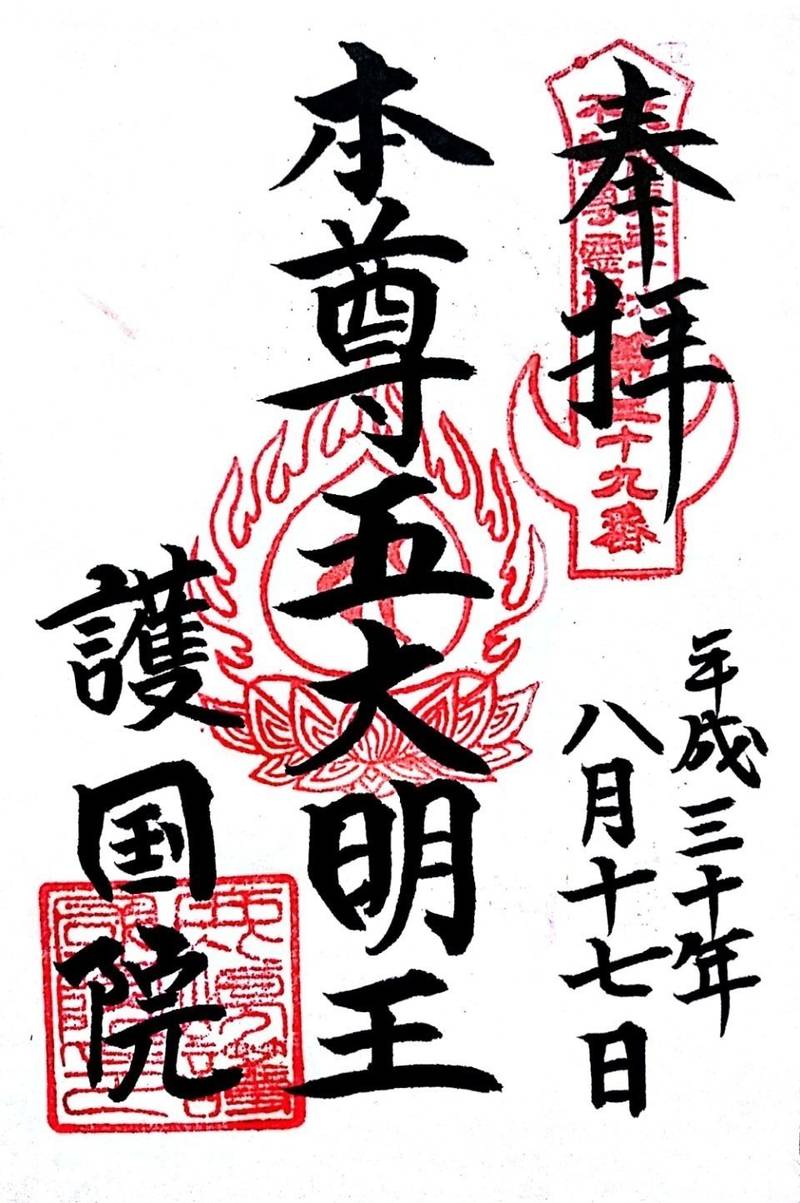 奉拝
平成三十年
八月十七日
本尊五大明王
護国院